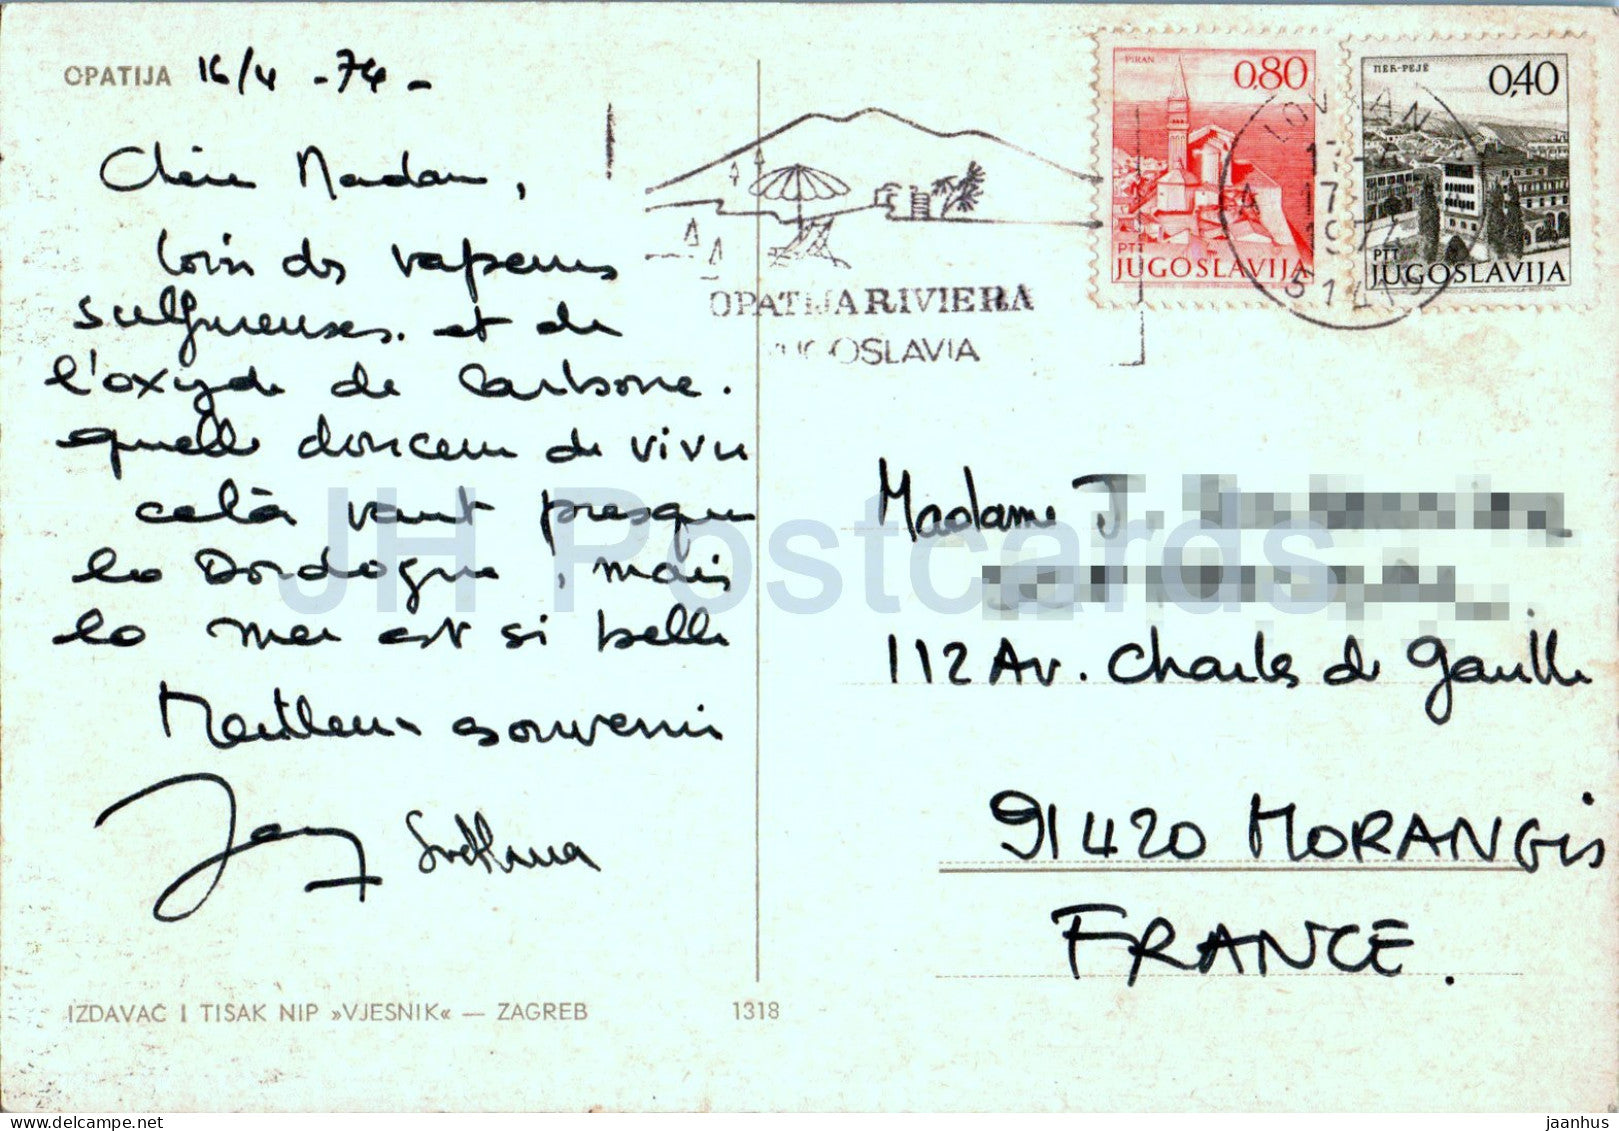 OPATIJA 16/4 -74-
Chère Madame,
loin des vapeurs
sulfureuses. et de
l'oxyde de carbone.
quelle douceur de vivre
celà vaut presque
la Dordogne, mais
la mer est si belle
Meilleurs souvenirs
Svetlana
IZDAVAČ I TISAK NIP »VJESNIK« — ZAGREB 1318
OPATIJA RIVIERA
JUGOSLAVIA
PIRAN
0,80
PTT
JUGOSLAVIJA
ПЕЋ-PEJË
0,40
PTT
JUGOSLAVIJA
LOVRAN
17
1974
Madame J.
112 Av. Charles de Gaulle
91420 MORANGIS
FRANCE.
JH Postcards
delcampe.net
jaanhus